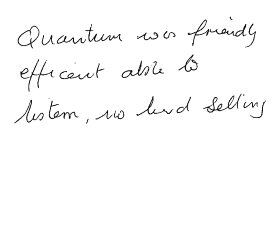 Quantum was friendly
efficient able to
listen, no hard selling